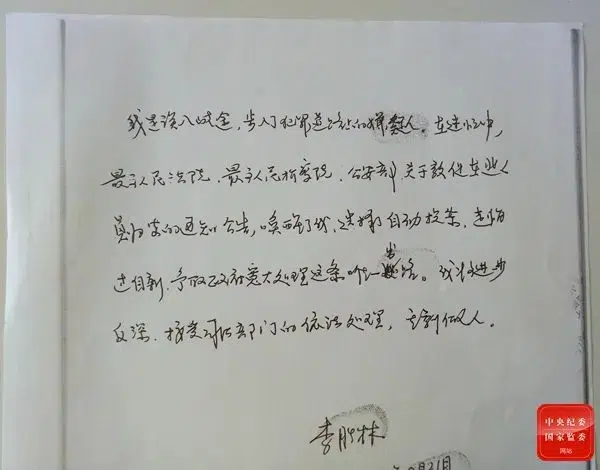 我是误入岐途，步入犯罪道路上的罪人。在迷惘中，
最高人民法院、最高人民检察院、公安部关于敦促在逃人
员归案的通知公告，唤醒了我，选择了自动投案，悔
过自新，争取政府宽大处理这条唯一出路。我将进步
反深，接受司法部门的依法处理，重新做人。
李胜林
月21日
中央纪委
国家监委
网站